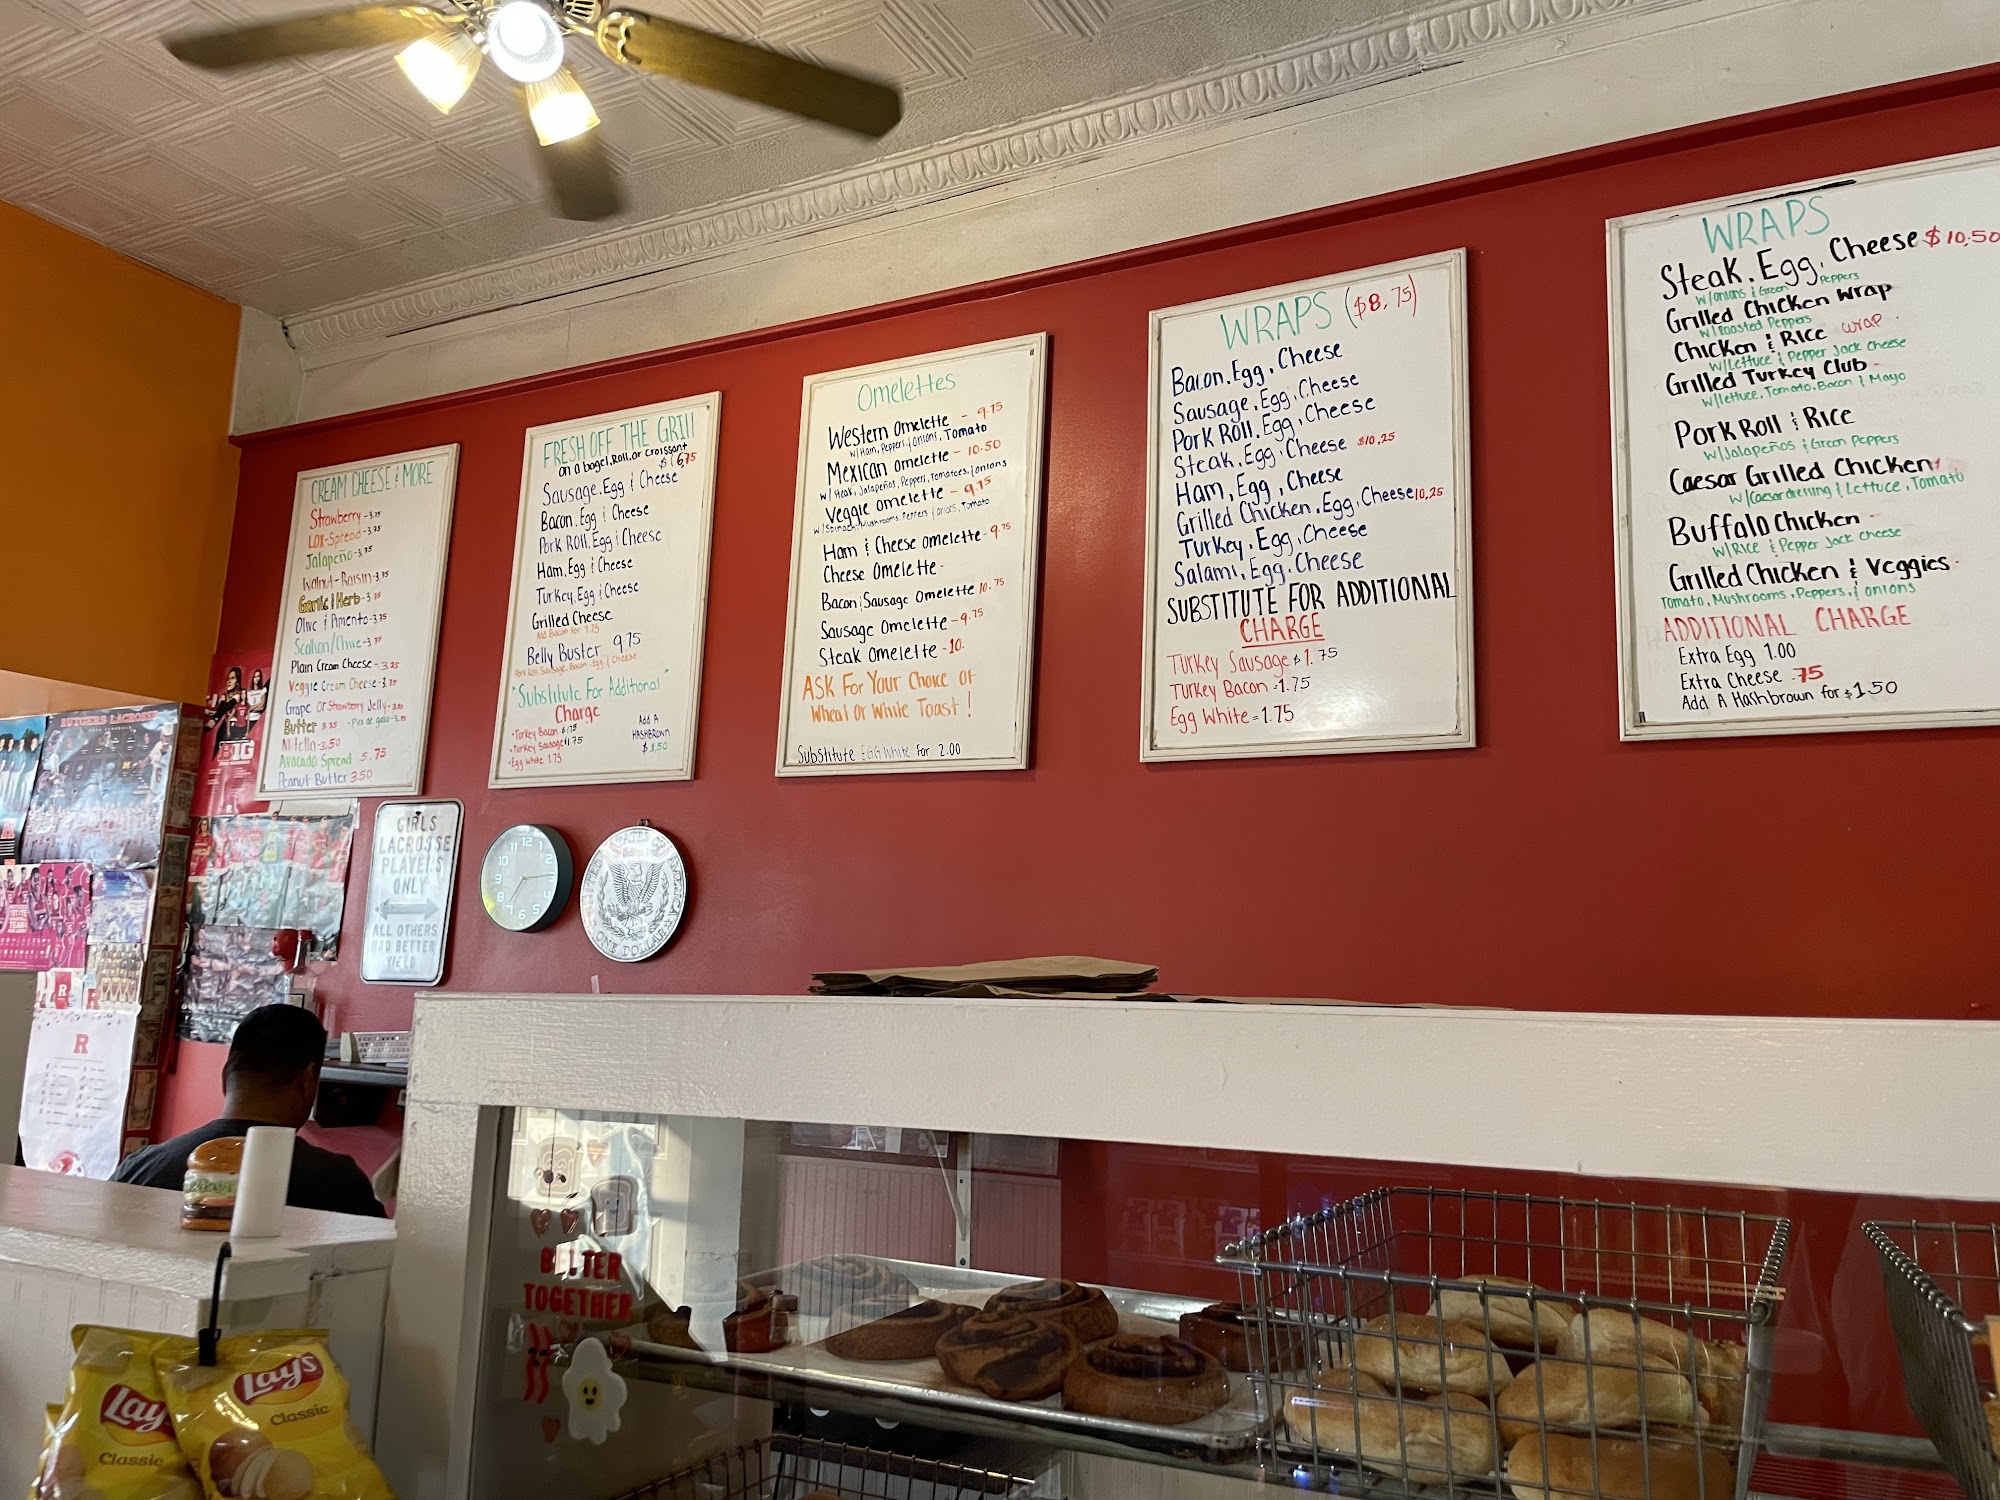 CREAM CHEESE & MORE
Strawberry - 3.75
LOX-Spread - 3.75
Jalapeño - 3.75
Walnut-Raisin - 3.75
Garlic & Herb - 3.75
Olive & Pimento - 3.75
Scallion/Chive - 3.75
Plain Cream Cheese - 3.25
Veggie Cream Cheese - 3.75
Grape or Strawberry Jelly
Butter - Pico de gallo
Nutella - 3.50
Avocado Spread 5.75
Peanut Butter 3.50
FRESH OFF THE GRIll
on a bagel, Roll, or croissant
$ 6.75
Sausage, Egg & Cheese
Bacon, Egg & Cheese
Pork Roll, Egg & Cheese
Ham, Egg & Cheese
Turkey, Egg & Cheese
Grilled Cheese
Add Bacon for 1.25
Belly Buster 9.75
Pork Roll, Sausage, Bacon, Egg & Cheese
"Substitute For Additional"
Charge
• Turkey Bacon $1.75
• Turkey Sausage $1.75
• Egg White 1.75
Add A
HASHBROWN
$1.50
Omelettes
Western omelette - 9.75
w/ Ham, Peppers, & onions, Tomato
Mexican omelette - 10.50
w/ Steak, Jalapeños, Peppers, Tomatoes, & onions
Veggie omelette - 9.75
w/ Spinach, Mushrooms, Peppers & onions, Tomato
Ham & Cheese omelette - 9.75
Cheese Omelette -
Bacon & Sausage Omelette 10.75
Sausage Omelette - 9.75
Steak Omelette - 10.
ASK For Your Choice of
Wheat or White Toast!
Substitute EGG White For 2.00
WRAPS ($8.75)
Bacon, Egg, Cheese
Sausage, Egg, Cheese
Pork Roll, Egg, Cheese
Steak, Egg, Cheese $10,25
Ham, Egg, Cheese
Grilled Chicken, Egg, Cheese 10,25
Turkey, Egg, Cheese
Salami, Egg, Cheese
SUBSTITUTE FOR ADDITIONAL
CHARGE
Turkey Sausage $1.75
Turkey Bacon = 1.75
Egg White = 1.75
WRAPS
Steak, Egg, Cheese $10.50
w/onions & Green Peppers
Grilled Chicken Wrap
w/Roasted Peppers
Chicken & Rice wrap
w/Lettuce & Pepper Jack cheese
Grilled Turkey Club
w/lettuce, Tomato, Bacon & Mayo
Pork Roll & Rice
w/Jalapeños & Green Peppers
Caesar Grilled Chicken
w/Caesar dressing & Lettuce, Tomato
Buffalo Chicken
w/Rice & Pepper Jack cheese
Grilled Chicken & Veggies
Tomato, Mushrooms, Peppers, & onions
ADDITIONAL CHARGE
Extra Egg 1.00
Extra Cheese .75
Add A Hashbrown for $1.50
RUTGERS LACROSSE
B1G
GIRLS
LACROSSE
PLAYERS
ONLY
ALL OTHERS
HAD BETTER
YIELD
12 1 2 3 4 5 6 7 8 9 10 11
UNITED STATES OF AMERICA
ONE DOLLAR
R
BETTER
TOGETHER
Lay's
Classic
Lay's
Classic